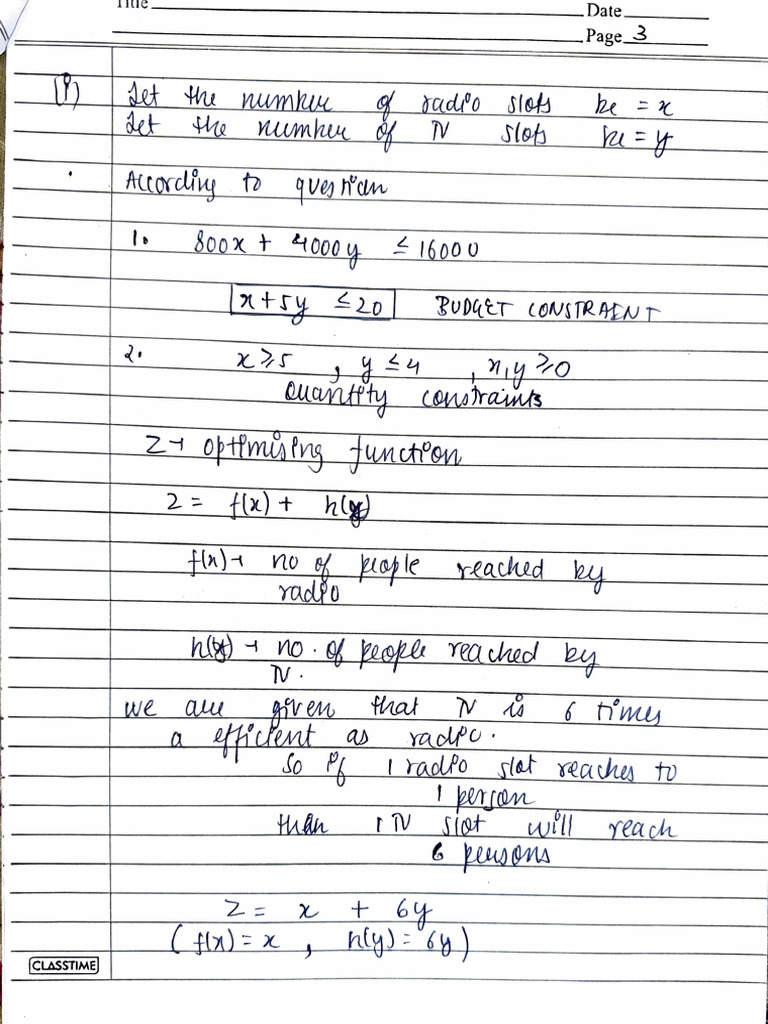 Title Date
Page 3
(i) Let the number of radio slots be = x
Let the number of TV slots be = y
According to question
1. 800x + 4000y ≤ 16000
x + 5y ≤ 20 BUDGET CONSTRAINT
2. x ≥ 5 , y ≤ 4 , x, y ≥ 0
Quantity constraints
Z → optimising function
Z = f(x) + h(y)
f(x) → no of people reached by
radio
h(y) → no. of people reached by
TV.
we are given that TV is 6 times
a efficient as radio.
so if 1 radio slot reaches to
1 person
then 1 TV slot will reach
6 persons
Z = x + 6y
( f(x) = x , h(y) = 6y )
CLASSTIME